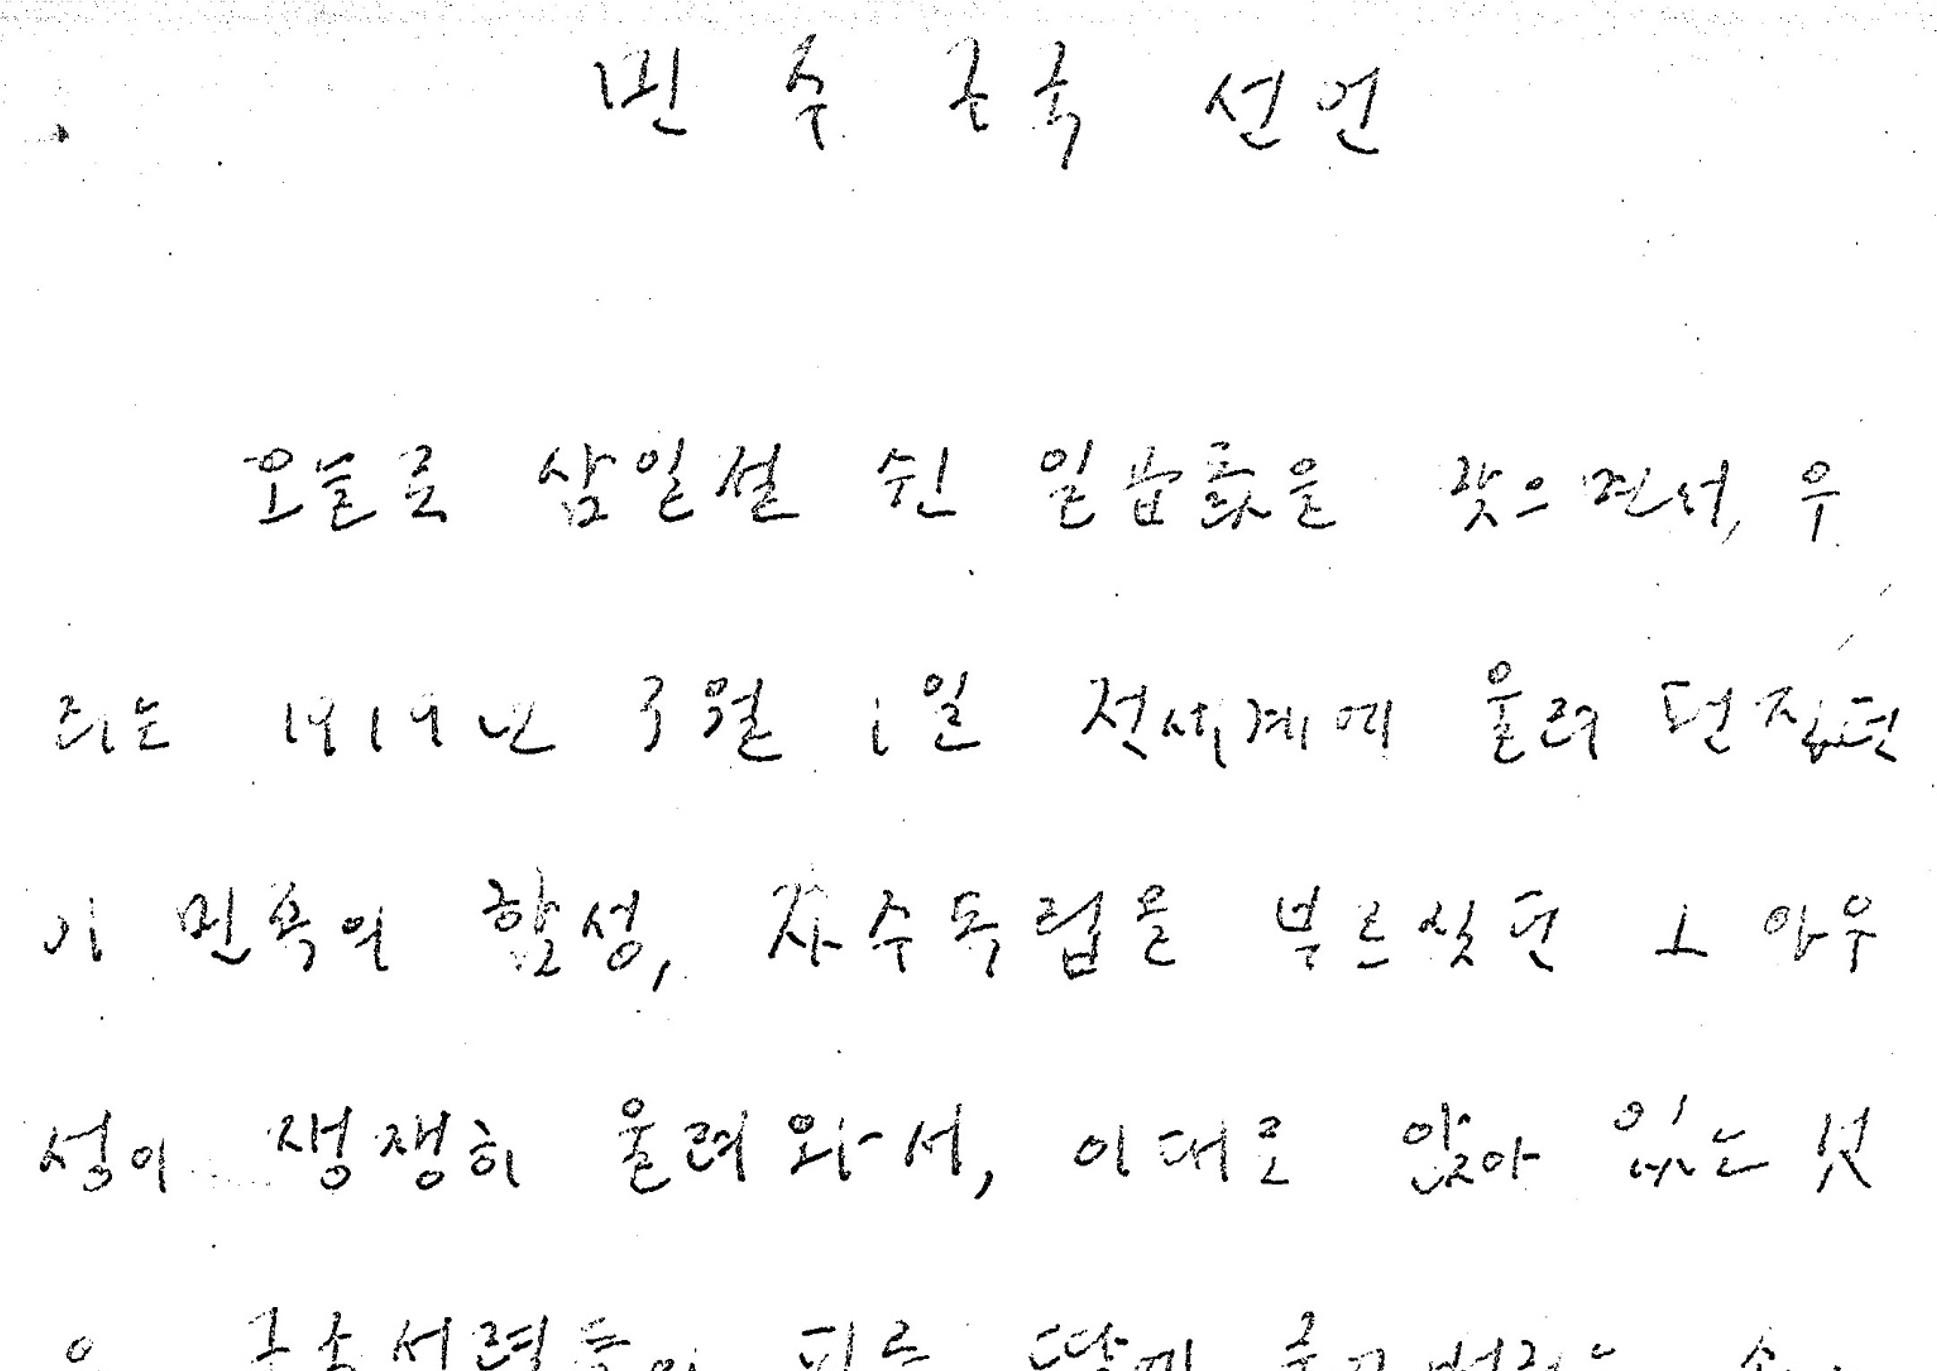 민주구국 선언
오늘로 삼일절 쉰 일곱돐을 맞으면서, 우
리는 1919년 3월 1일 전세계에 울려 퍼지던
이 민족의 함성, 자주독립을 부르짖던 그 아우
성이 쟁쟁히 울려와서, 이대로 앉아 있는 것
은 구국선열들의 피를